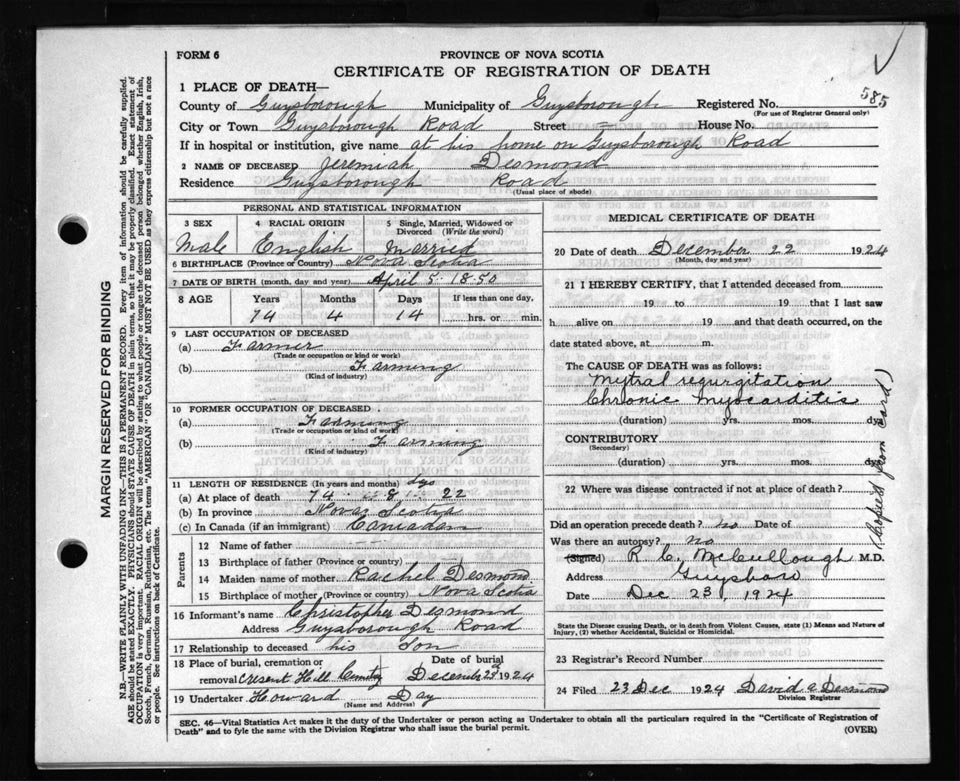 FORM 6
PROVINCE OF NOVA SCOTIA
CERTIFICATE OF REGISTRATION OF DEATH
1 PLACE OF DEATH—
County of Guysborough Municipality of Guysborough Registered No. 585
(For use of Registrar General only)
City or Town Guysborough Road Street = House No.
If in hospital or institution, give name at his home on Guysborough Road
2 NAME OF DECEASED Jeremiah Desmond
Residence Guysborough Road
(Usual place of abode)
PERSONAL AND STATISTICAL INFORMATION
3 SEX 4 RACIAL ORIGIN 5 Single, Married, Widowed or Divorced (Write the word)
Male English Married
6 BIRTHPLACE (Province or Country) Nova Scotia
7 DATE OF BIRTH (month, day and year) April 5 1850
8 AGE Years Months Days If less than one day,
74 4 14 hrs. or min.
9 LAST OCCUPATION OF DECEASED
(a) Farmer
(Trade or occupation or kind of work)
(b) Farming
(Kind of industry)
10 FORMER OCCUPATION OF DECEASED
(a) Farming
(Trade or occupation or kind of work)
(b) Farming
(Kind of industry)
11 LENGTH OF RESIDENCE (In years and months) dys
(a) At place of death 74 8 22
(b) In province Nova Scotia
(c) In Canada (if an immigrant) Canadan
Parents
12 Name of father
13 Birthplace of father (Province or country)
14 Maiden name of mother Rachel Desmond
15 Birthplace of mother (Province or country) Nova Scotia
16 Informant's name Christopher Desmond
Address Guysborough Road
17 Relationship to deceased his Son
18 Place of burial, cremation or removal Cresent Hill Cemty Date of burial December 23 1924
19 Undertaker Howard Day
(Name and Address)
MEDICAL CERTIFICATE OF DEATH
20 Date of death December 22 1924
(Month, day and year)
21 I HEREBY CERTIFY, that I attended deceased from
19 to 19 that I last saw
h alive on 19 and that death occurred, on the
date stated above, at m.
The CAUSE OF DEATH was as follows:
Mytral regurgitation
Chronic Myocarditis
(duration) yrs. mos. dys
CONTRIBUTORY
(Secondary)
(duration) yrs. mos. dys
22 Where was disease contracted if not at place of death?
Did an operation precede death? no Date of
Was there an autopsy? no
(Signed) R. C. McCullough M.D.
Address Guysboro
Date Dec 23, 1924
(Copied from Card)
State the Disease causing Death, or in death from Violent Causes, state (1) Means and Nature of
Injury, (2) whether Accidental, Suicidal or Homicidal.
23 Registrar's Record Number
24 Filed 23 Dec 1924 David a Desmond
Division Registrar
SEC. 46—Vital Statistics Act makes it the duty of the Undertaker or person acting as Undertaker to obtain all the particulars required in the "Certificate of Registration of
Death" and to fyle the same with the Division Registrar who shall issue the burial permit. (OVER)
MARGIN RESERVED FOR BINDING
N.B.—WRITE PLAINLY WITH UNFADING INK—THIS IS A PERMANENT RECORD. Every item of information should be carefully supplied.
AGE should be stated EXACTLY. PHYSICIANS should STATE CAUSE OF DEATH in plain terms, so that it may be properly classified. Exact statement of
OCCUPATION is very important. RACIAL ORIGIN will be described by stating to what people or tongue the deceased person belonged whether English, Irish,
Scotch, French, German, Russian, Ruthenian, etc. The terms "AMERICAN" OR "CANADIAN" MUST NOT BE USED as they express citizenship but not a race or
people. See instructions on back of Certificate.